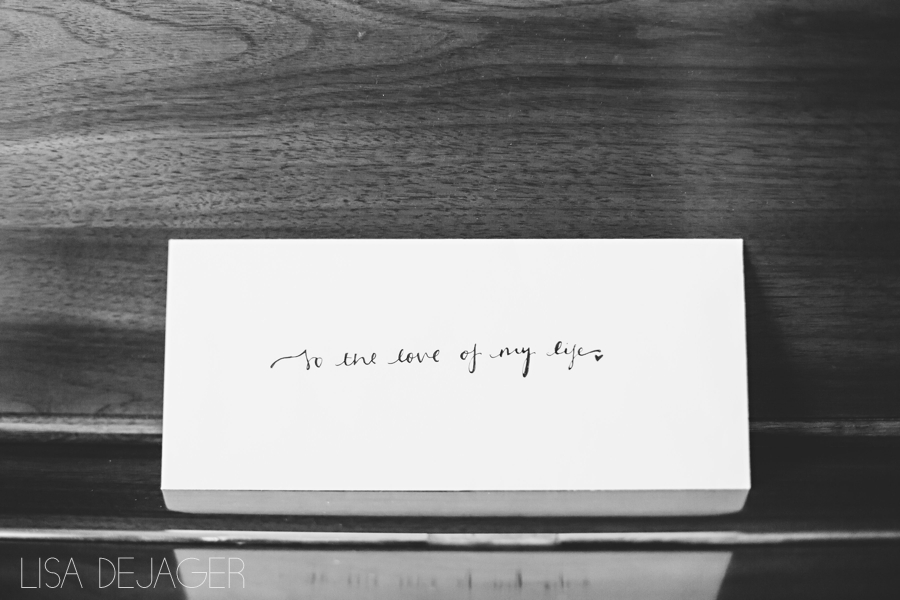 To the love of my life
LISA DEJAGER